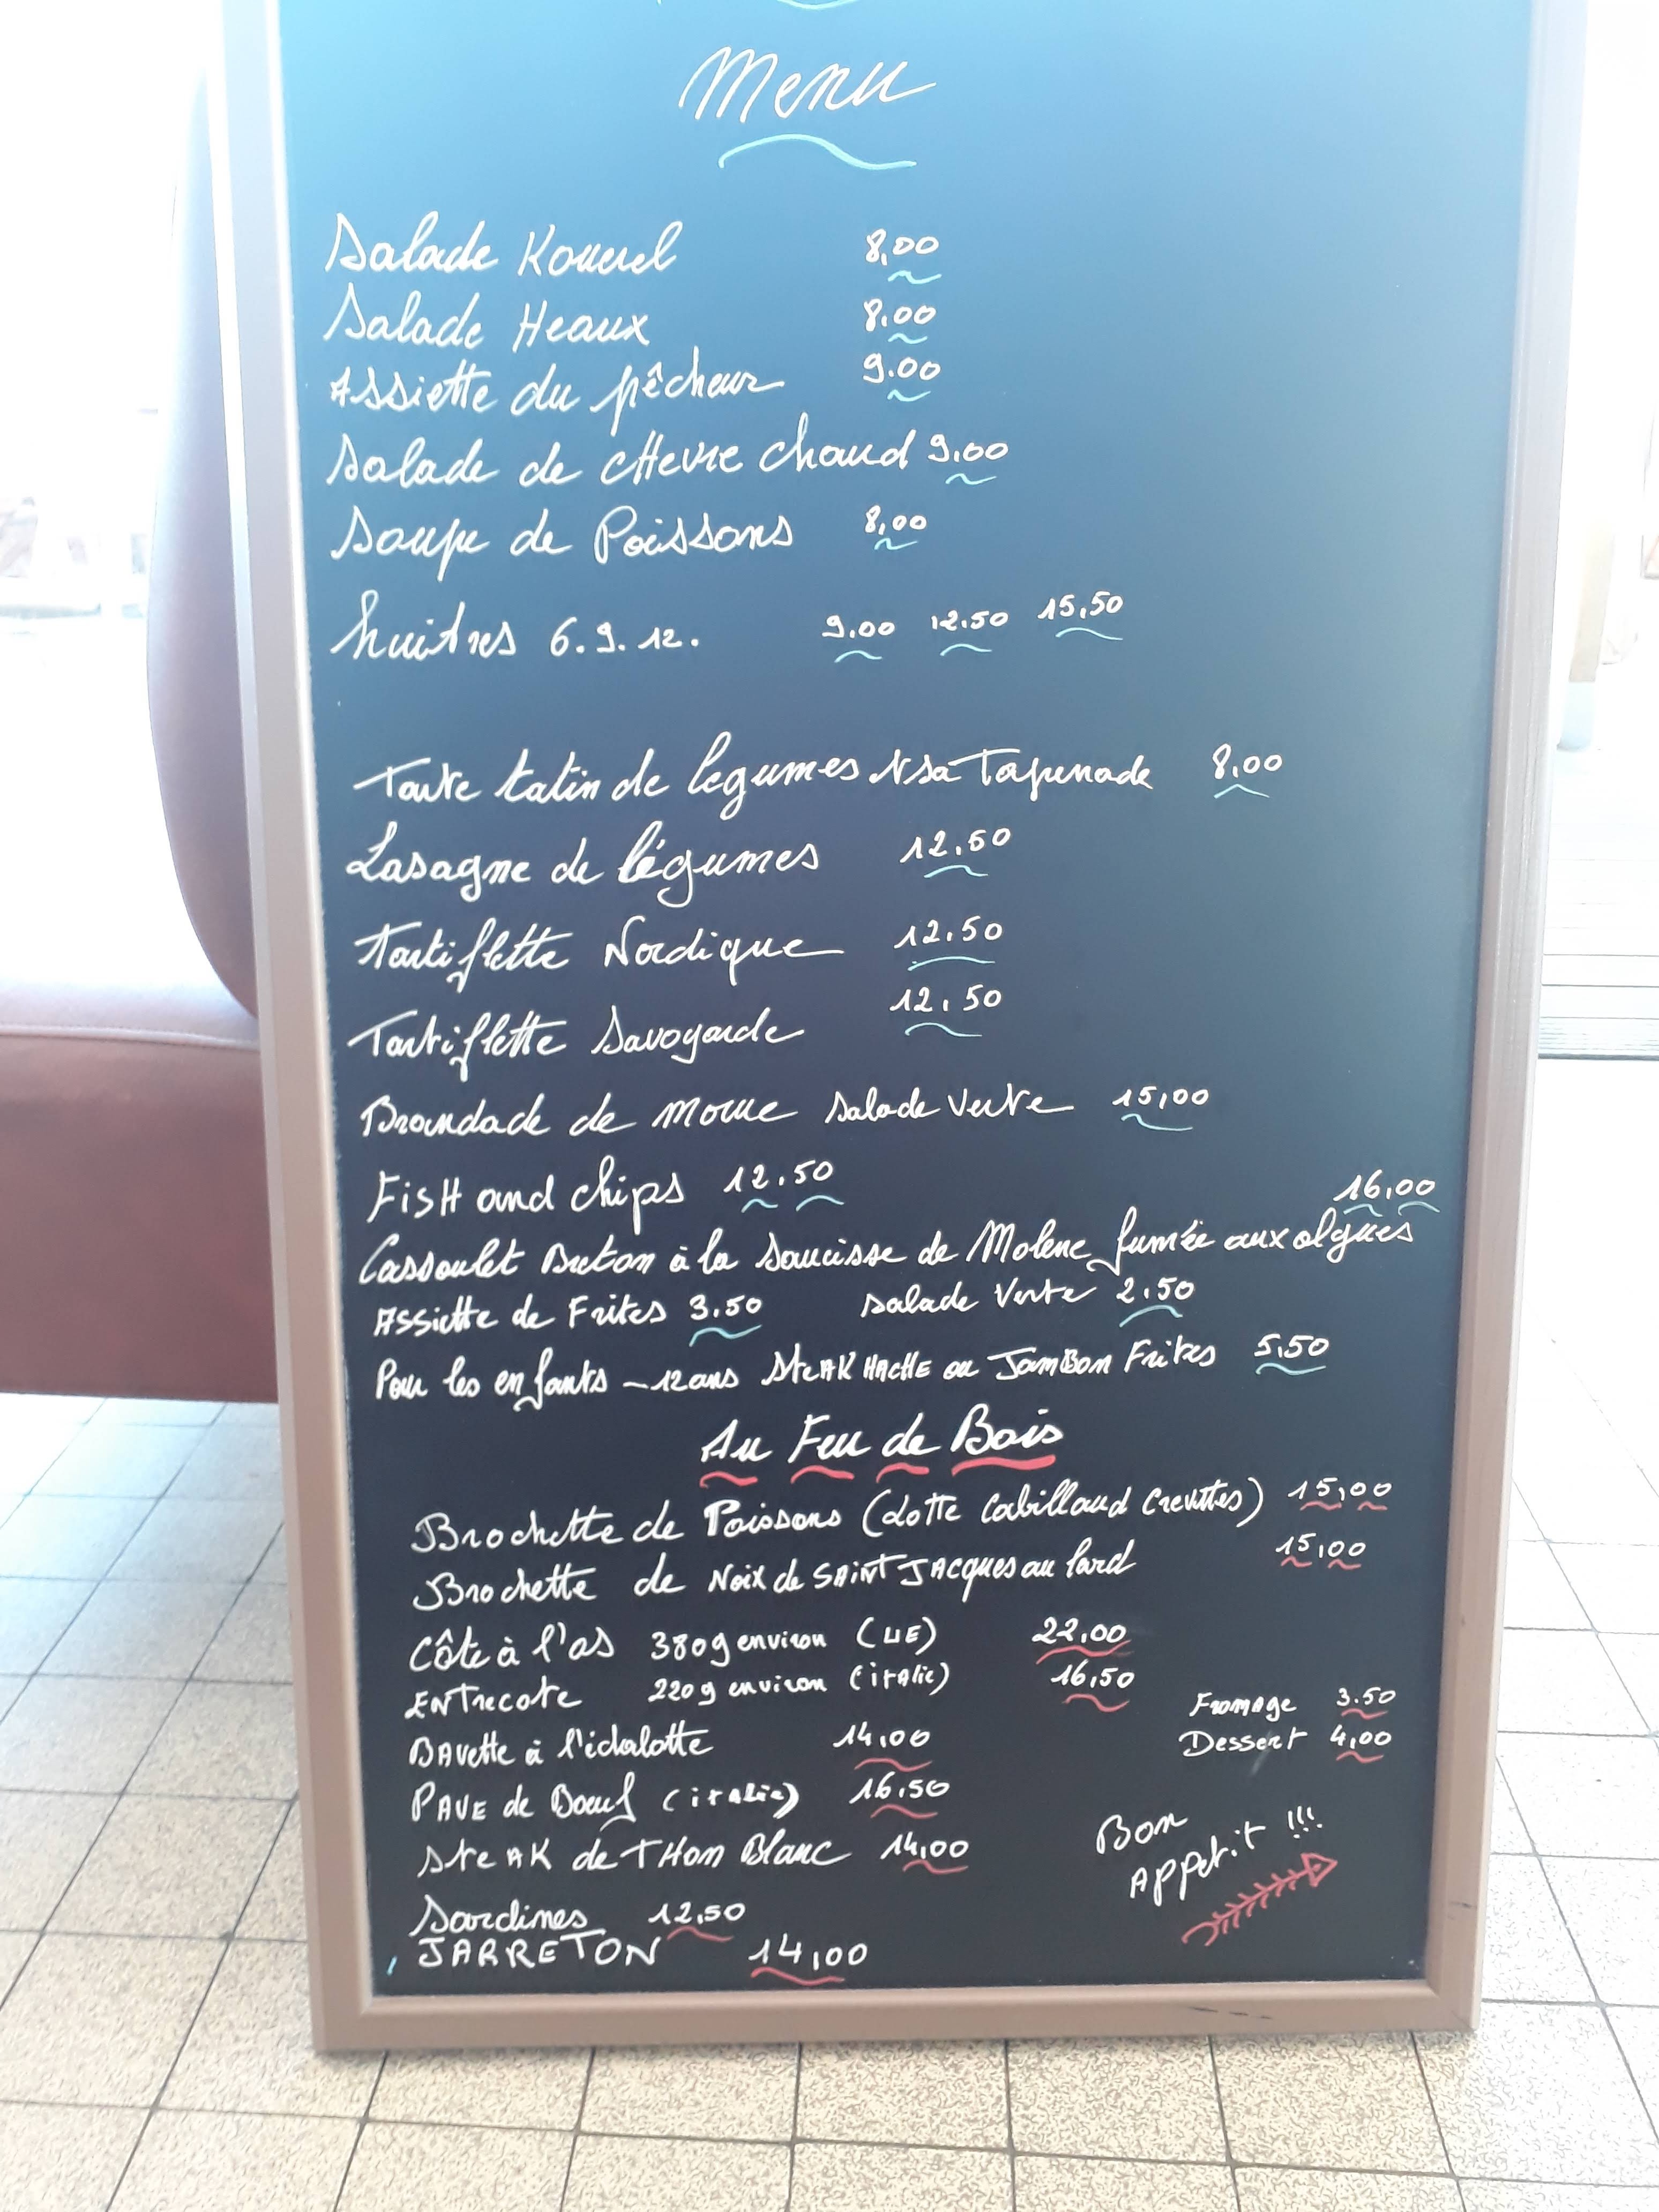 Menu
Salade Kouerel 8,00
Salade Heaux 8.00
Assiette du pêcheur 9.00
Salade de cHevre chaud 9.00
Soupe de Poissons 8,00
huitres 6.9.12. 9.00 12.50 15,50
Tarte tatin de legumes & sa Tapenade 8,00
Lasagne de légumes 12.50
Tartiflette Nordique 12.50
Tartiflette Savoyarde 12,50
Brandade de morue salade Verte 15,00
FisH and chips 12.50
Cassoulet Breton à la Saucisse de Molene fumée aux algues 16,00
Assiette de Frites 3.50 salade Verte 2.50
Pour les enfants -12 ans SteAK HACHE ou JamBon Frites 5,50
Au Feu de Bois
Brochette de Poissons (Lotte Cabillaud Crevettes) 15,00
Brochette de Noix de SAINT JAcques au lard 15,00
Côte à l'os 380g environ (UE) 22,00
ENTrecote 220g environ (iTAlie) 16,50
BAvette à l'échalotte 14,00
Fromage 3.50
Dessert 4,00
PAVE de Boeuf (iTAlie) 16,50
SteAK de THon Blanc 14,00
Bon
Appetit !!!
Sardines 12,50
JARRETON 14,00